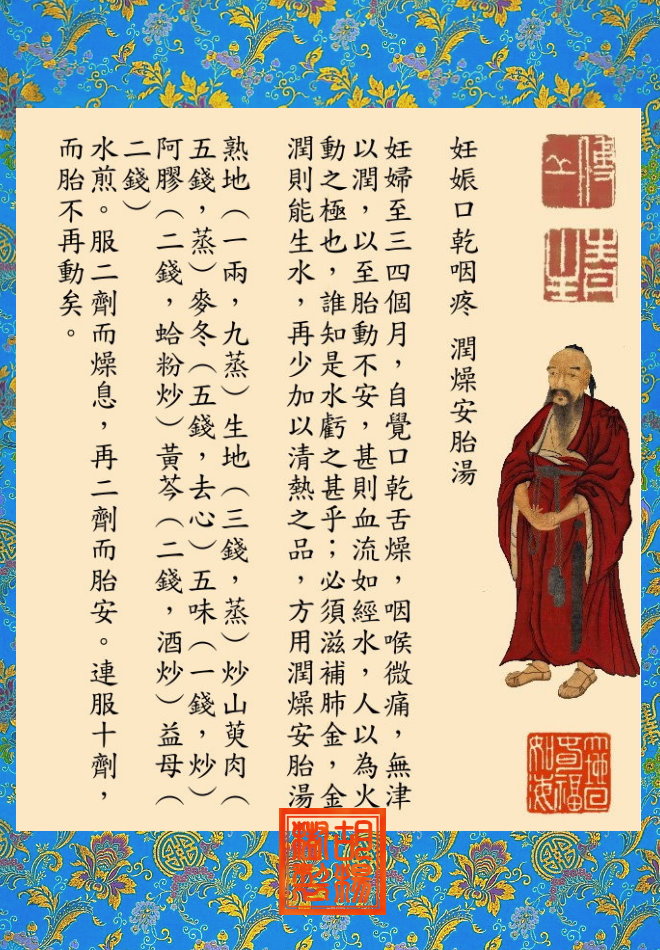 妊娠口乾咽疼 潤燥安胎湯
妊婦至三四個月，自覺口乾舌燥，咽喉微痛，無津
以潤，以至胎動不安，甚則血流如經水，人以為火
動之極也，誰知是水虧之甚乎；必須滋補肺金，金
潤則能生水，再少加以清熱之品，方用潤燥安胎湯
熟地（一兩，九蒸）生地（三錢，蒸）炒山萸肉（
五錢，蒸）麥冬（五錢，去心）五味（一錢，炒）
阿膠（二錢，蛤粉炒）黃芩（二錢，酒炒）益母（
二錢）
水煎。服二劑而燥息，再二劑而胎安。連服十劑，
而胎不再動矣。